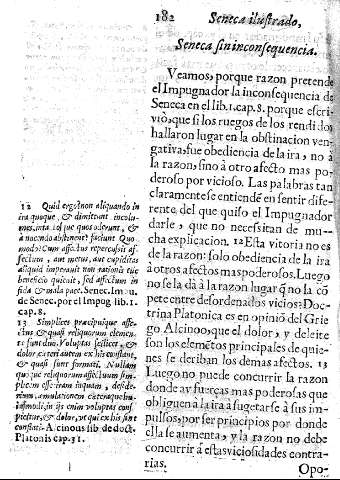 182 Seneca ilustrado,
Seneca sin inconsequencia.
Veamos, porque razon pretende
el Impugnador la inconsequencia de
Seneca en el lib. 1. cap. 8. porque escri-
viò, que si los ruegos de los rendidos
hallaron lugar en la obstinacion ven-
gativa, fue obediencia de la ira, no à
la razon, sino à otro afecto mas po-
deroso por vicioso. Las palabras tan
claramente se entiendē en sentir dife-
rente del que quiso el Impugnador
darle, que no necessitan de mu-
cha explicacion. 12 Esta vitoria no es
de la razon: solo obediencia de la ira
à otros afectos mas poderosos. Luego
no se la dà à la razon lugar q̄ no la cō
pete entre desordenados vicios: Doc-
trina Platonica es en opiniō del Grie
go Alcinoo, que el dolor, y deleite
son los elemētos principales de quie-
nes se deriban los demas afectos. 13
Luego no puede concurrir la razon
donde ay fuerças mas poderosas que
obliguen à la ira à sugetarse à sus im-
pulsos, por ser principios por donde
ella se aumenta, y la razon no debe
concurrir à estas viciosidades contra-
rias.
Opo-
12 Quid ergo? non aliquando in
ira quoque, & dimittunt incolu-
mes, intactosque quos oderunt, &
à nocendo abstinent? faciunt Quo
modo? Cum affectus repercusit af-
fectum, aut metus, aut cupiditas
aliquid imperavit non rationis tùc
beneficio quievit, sed affectum in
fida & mala pace. Senec. In
de Senec. por el Impug. lib. 1.
cap. 8.
13 Simplices præcipuique affe-
ctus & quasi reliquorum elemen-
ta sunt duo. Voluptas scilicet, &
dolor, cæteri autem ex his constant,
& quasi sunt formati. Nullam
que reliquorum affectuum sim-
plicem esse
Alcinous lib. de doct.
Platonis cap. 31.